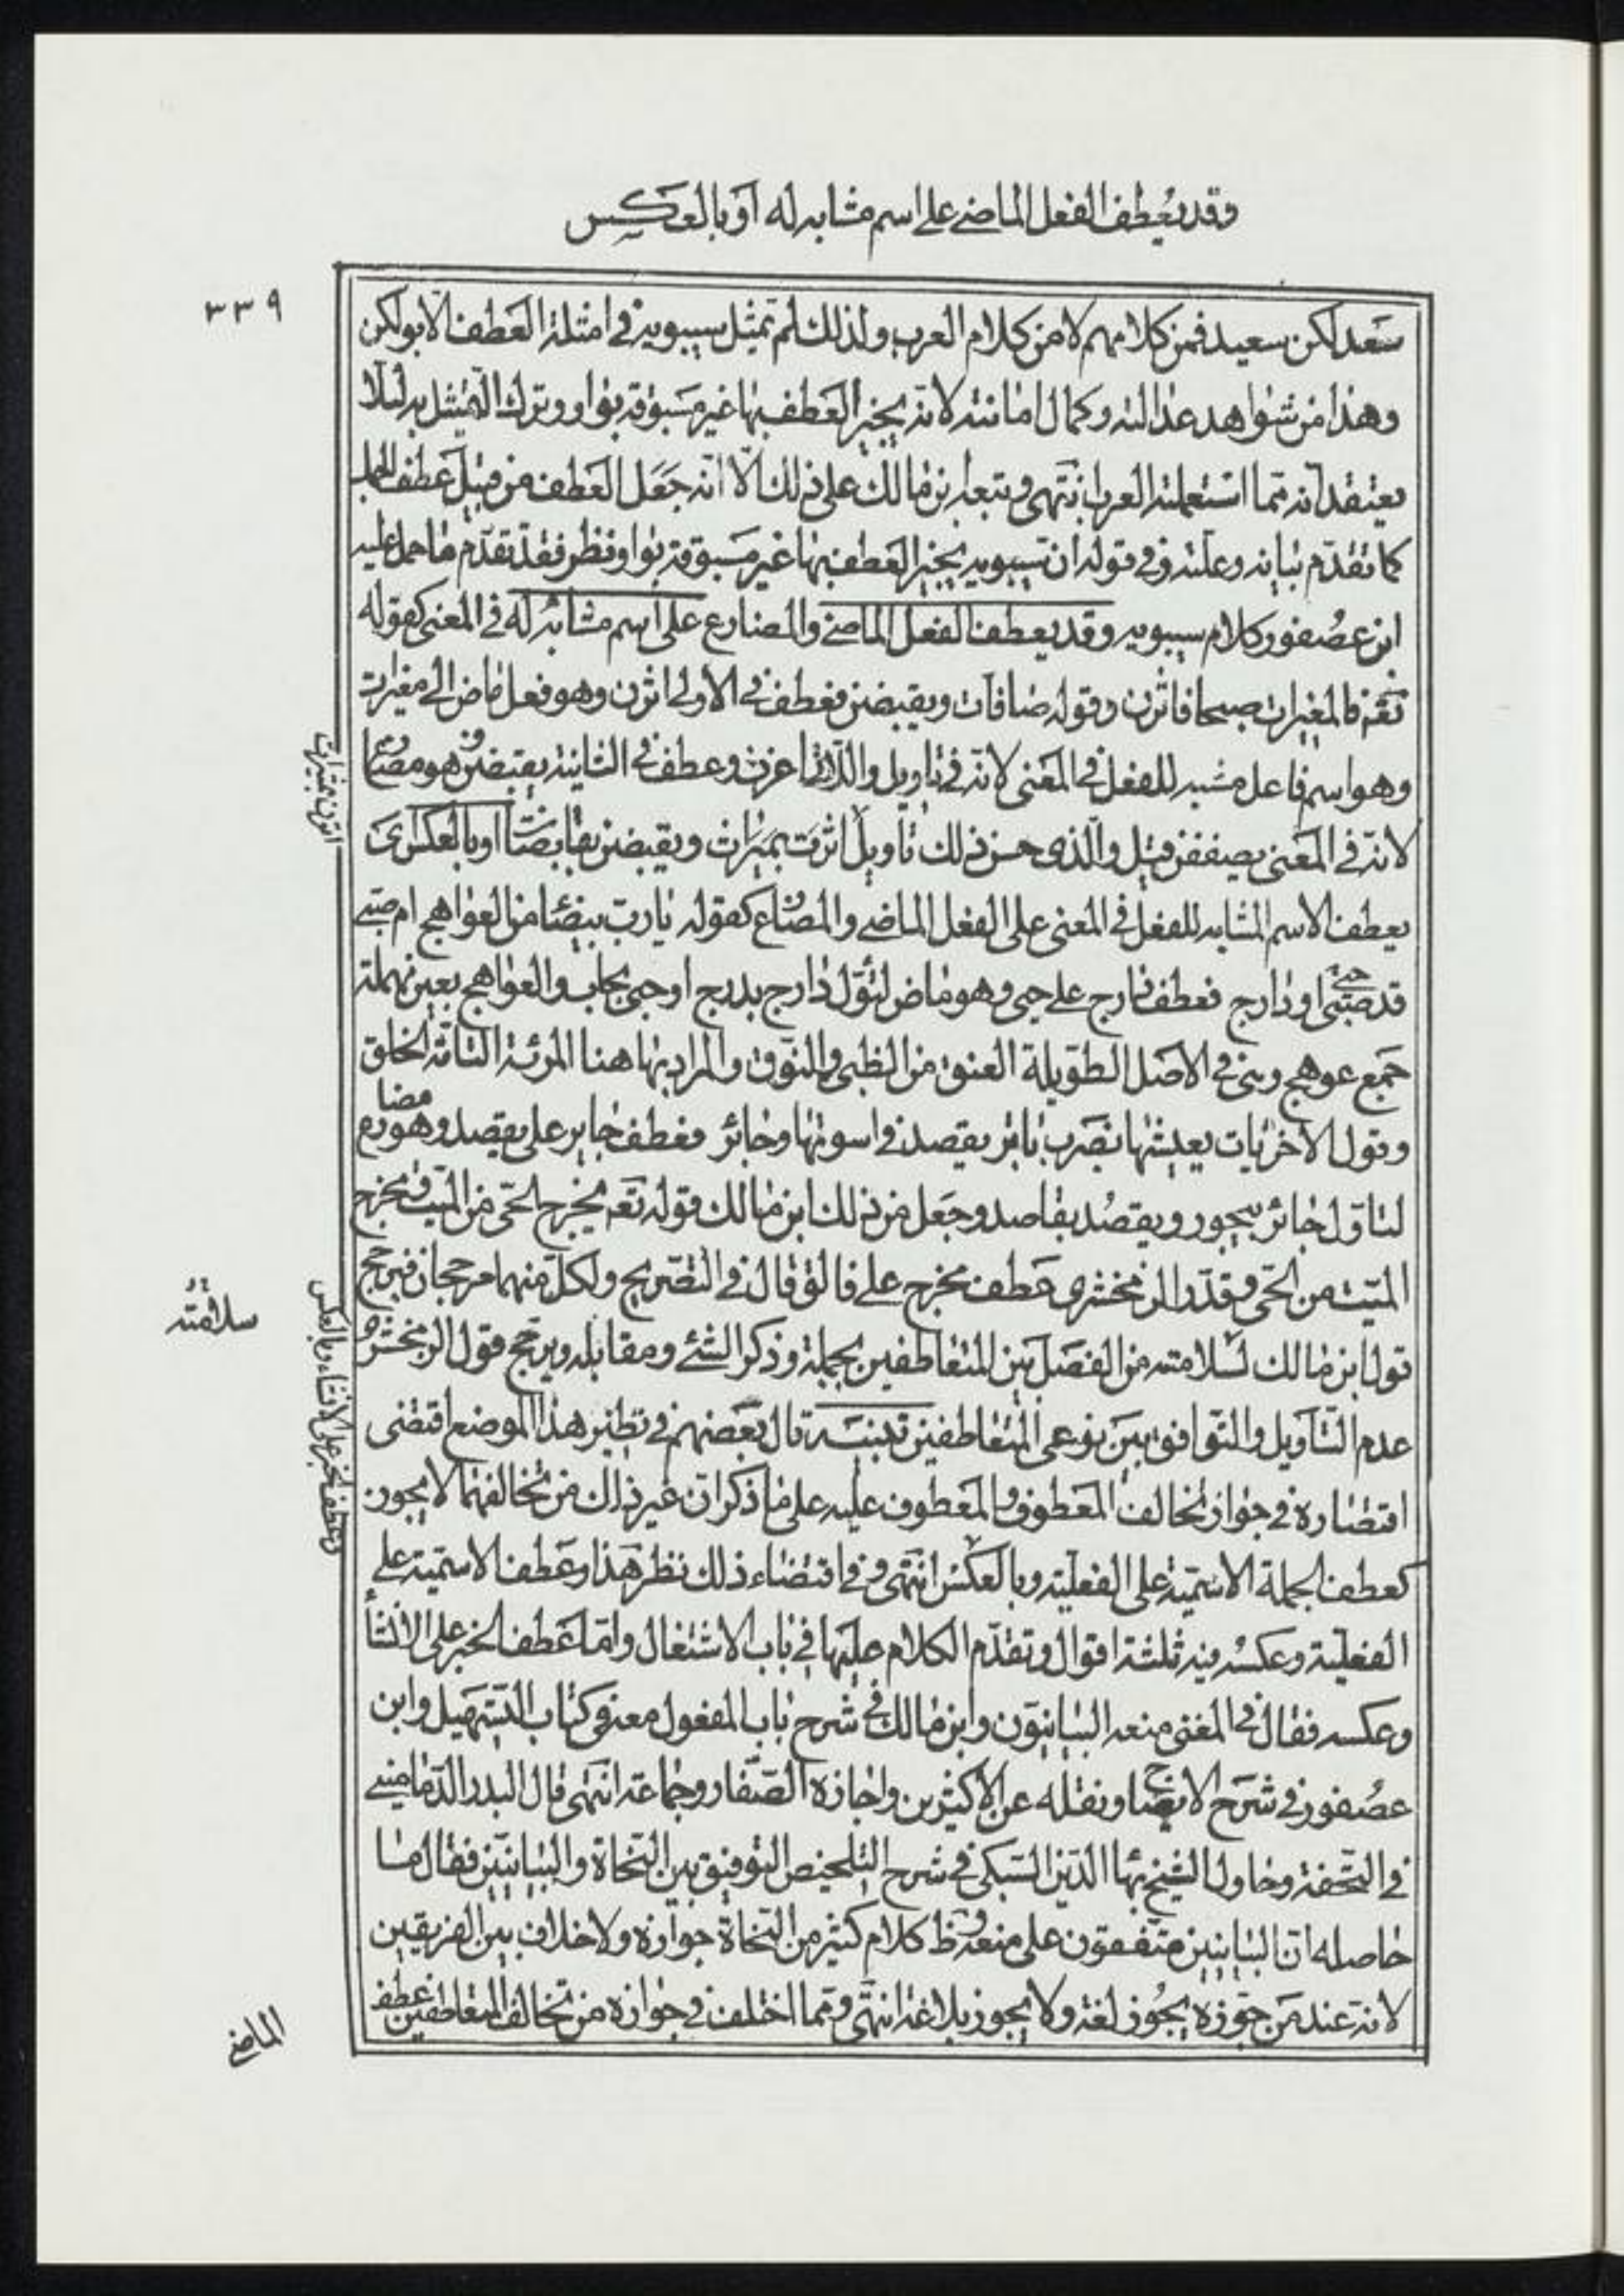 وقد يعطف الفعل الماضي على اسم مشابه له أو بالعكس
٣٣٩
سعد لكن سعيد فمن كلامهم لا من كلام العرب ولذلك لم تمثل سيبويه في امثلة العطف الا بولكن
وهذا من شواهد عدالته وكمال امانته لانه يجيز العطف بها غير مسبوقة بواو وترك التمثيل به لئلا
يعتقد انه مما استعملته العرب انتهى وتبعه ابن مالك على ذلك الا انه جعل العطف من قبيل عطف الجمل
كما تقدم بيانه وعلته وفي قوله ان سيبويه يجيز العطف بها غير مسبوقة بواو نظر فقد تقدم ما حمل عليه
ابن عصفور كلام سيبويه وقد يعطف الفعل الماضي والمضارع على اسم مشابه له في المعنى كقوله
تعه فالمغيرات صبحا فاثرن وقوله صافات ويقبضن فعطف في الأولى اثرن وهو فعل ماض الى مغيرات
وهو اسم فاعل مشبه للفعل في المعنى لانه في تاويل واللاتي اغرن وعطف في الثانية يقبضن وهو مضارع
لانه في المعنى يصففن قيل والذي حسن ذلك تأويل اثرت بميزات ويقبضن بقابضات او بالعكس اى
يعطف الاسم المشابه للفعل في المعنى على الفعل الماضي والمضارع كقوله يا رب بيضا من العواهج ام صبي
قد حبى او دارج فعطف دارج على حبى وهو ماض لتؤل دارج بدرج او حبى بحاب والعواهج بعين مهملة
جمع عوهج وهى في الاصل الطويلة العنق من الظبى والنوق والمراد بها هنا المرئة التامة الخلق
وقول الآخر بات يعيشها بعضب باتر يقصد في اسوقها وجائر فعطف جاير على يقصد وهو مضارع
لتاول جائر بيجور ويقصد بقاصد وجعل من ذلك ابن مالك قوله تعه يخرج الحى من الميت ومخرج
الميت من الحى وقدر الزمخشرى عطف مخرج على فالق قال في التصريح ولكل منهما مرجحان فيرجح
قول ابن مالك لسلامته من الفصل بين المتعاطفين بجملة وذكر الشئ ومقابله ويرجح قول الزمخشرى
عدم التأويل والتوافق بين نوعي المتعاطفين تنبيه قال بعضهم في نظير هذا الموضع اقتضى
اقتصاره في جواز تخالف المعطوف والمعطوف عليه على ما ذكر ان غير ذلك من تخالفهما لا يجوز
كعطف الجملة الاسمية على الفعلية وبالعكس انتهى وفي اقتضاء ذلك نظر هذا وعطف الاسمية على
الفعلية وعكسه فيه ثلثة اقوال وتقدم الكلام عليها في باب الاشتغال واما عطف الخبر على الانشاء
وعكسه فقال في المغنى منعه البيانيون وابن مالك في شرح باب المفعول معه في كتاب التسهيل وابن
عصفور في شرح الايضاح ونقله عن الاكثرين واجازه الصفار وجماعة انتهى قال البدر الدمامينى
في التحفة وحاول الشيخ بهاء الدين السبكى في شرح التلخيص التوفيق بين النحاة والبيانيين فقال ما
حاصله ان البيانيين متفقون على منعه وظ كلام كثير من النحاة جوازه ولا خلاف بين الفريقين
لانه عند من جوزه يجوز لغة ولا يجوز بلاغة انتهى ومما اختلف في جوازه من تخالف المتعاطفين عطف
سلامته
وعطف الخبر على الانشاء وبالعكس
الماضي